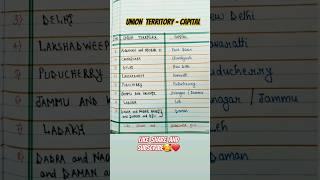 UNION TERRITORY - CAPITAL
UNION TERRITORY CAPITAL
CHANDIGARH Chandigarh
DELHI New Delhi
LAKSHADWEEP Kavaratti
PUDUCHERRY Puducherry
JAMMU AND Srinagar / Jammu
LADAKH Leh
DADRA AND NAGAR
AND DAMAN AND DIU Daman
LIKE SHARE AND
SUBSCRIBE
3) DELHI New Delhi
LAKSHADWEEP
PUDUCHERRY
JAMMU AND / Jammu
LADAKH
DADRA AND NAG
AND DAMAN AN Daman